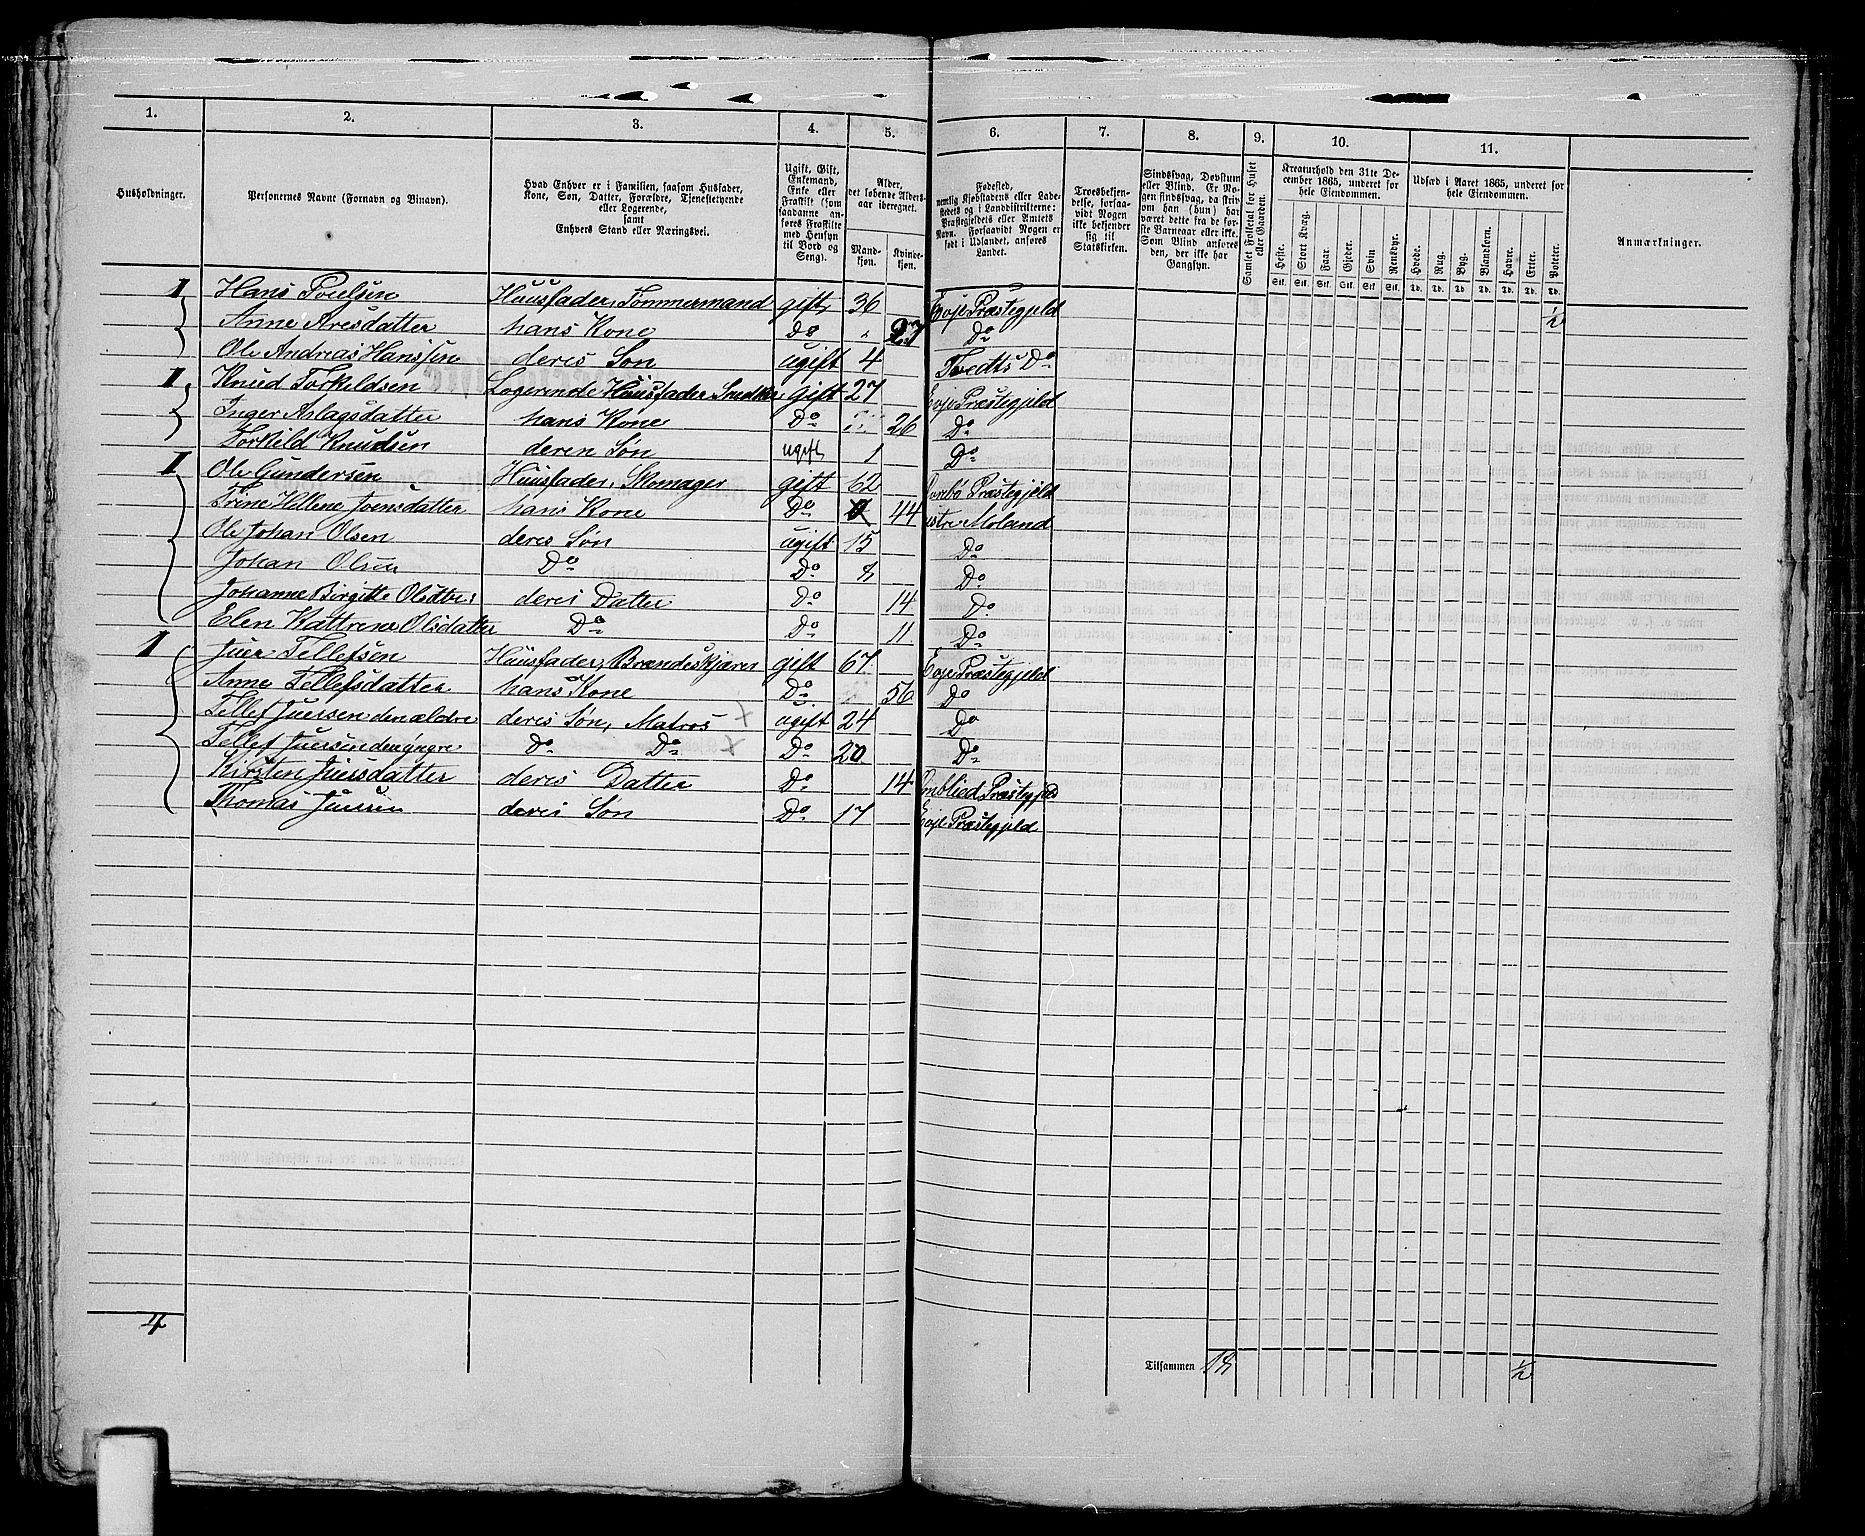 1. 2. 3. 4. 5. 6. 7. 8. 9. 10. 11.
Husholdninger.
Personernes Navne (Fornavn og Binavn).
Hvad Enhver er i Familien, saasom Husfader,
Kone, Søn, Datter, Forældre, Tjenestetyende
eller Logerende,
samt
Enhvers Stand eller Næringsvei.
Ugift, Gift,
Enkemand,
Enke eller
Fraskilt (som
saadanne an-
føres Fraskilte
med Hensyn
til Bord og
Seng).
Alder,
det løbende Alders-
aar iberegnet.
Mand-
kjøn.
Kvinde-
kjøn.
Fødested,
nemlig Kjøbstadens eller Lade-
stedets og i Landdistrikterne:
Præstegjeldets eller Amtets
Navn. Forsaavidt Nogen er
født i Udlandet, anføres
Landet.
Troesbekjen-
delse, forsaa-
vidt Nogen
ikke bekjender
sig til
Statskirken.
Sindssvag, Døvstum
eller Blind. Er No-
gen sindssvag, da skriv
om han (hun) har
været dette fra de før-
ste Barneaar eller ikke.
Som Blind anføres
den, der ikke har
Gangsyn.
Samlet Folketal for Huset
eller Gaarden.
Kreaturhold den 31te De-
cember 1865, underet for
hele Eiendommen.
Heste. Stort Kvæg. Faar. Gjeder. Svin Rensdyr.
Stk. Stk. Stk. Stk. Stk. Stk.
Udsæd i Aaret 1865, underet for
hele Eiendommen.
Hvede. Rug. Byg. Blandkorn. Havre. Erter. Poteter.
Td. Td. Td. Td. Td. Td. Td.
Anmærkninger.
1 Hans Poulsen Huusfader, Tømmermand gift 36 Evje Præstegjeld ½
Anne Aresdatter hans Kone Do 27 Do
Ole Andreas Hanssen deres Søn ugift 4 Tvedts Do
1 Knud Torkildsen Logerende Huusfader Snedker gift 27 Evje Præstegjeld
Inger Aslagsdatter hans Kone Do 26 Do
Torkild Knudsen deren Søn ugift 1 Do
1 Ole Gundersen Huusfader, Skomager gift 62 Præstegjeld
Trine Hellene Joensdatter hans Kone Do 44 Moland
Ole Johan Olsen deres Søn ugift 15 Do
Johan Olsen Do Do 8 Do
Johanne Birgitte Olsdtr: deres Datter Do 14 Do
Elen Kattrene Olsdatter Do Do 11 Do
1 Juer Tellefsen Huusfader, Brændeskjærer gift 67 Evje Præstegjeld
Anne Tellefsdatter hans Kone Do 56 Do
Tellef Juersen den ældre deres Søn, Matros ugift 24 Do
Tellef Juersen den yngre Do Do Do 20 Do
Kirsten Juersdatter deres Datter Do 14 Præstegjeld
Thomas Juersen deres Søn Do 17 Evje Præstegjeld
4
Tilsammen 18 ½